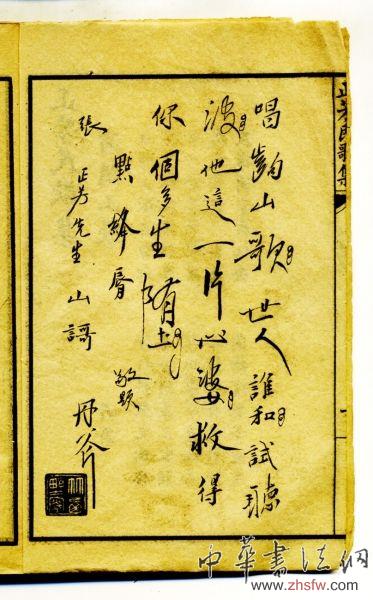 正芳民歌集
唱齣山歌世人誰和試聽
波他這一片心婆救得
你個多生墮
點絳脣 敬題
張正芳先生山謌 丹斧
中華書法網
www.zhsfw.com